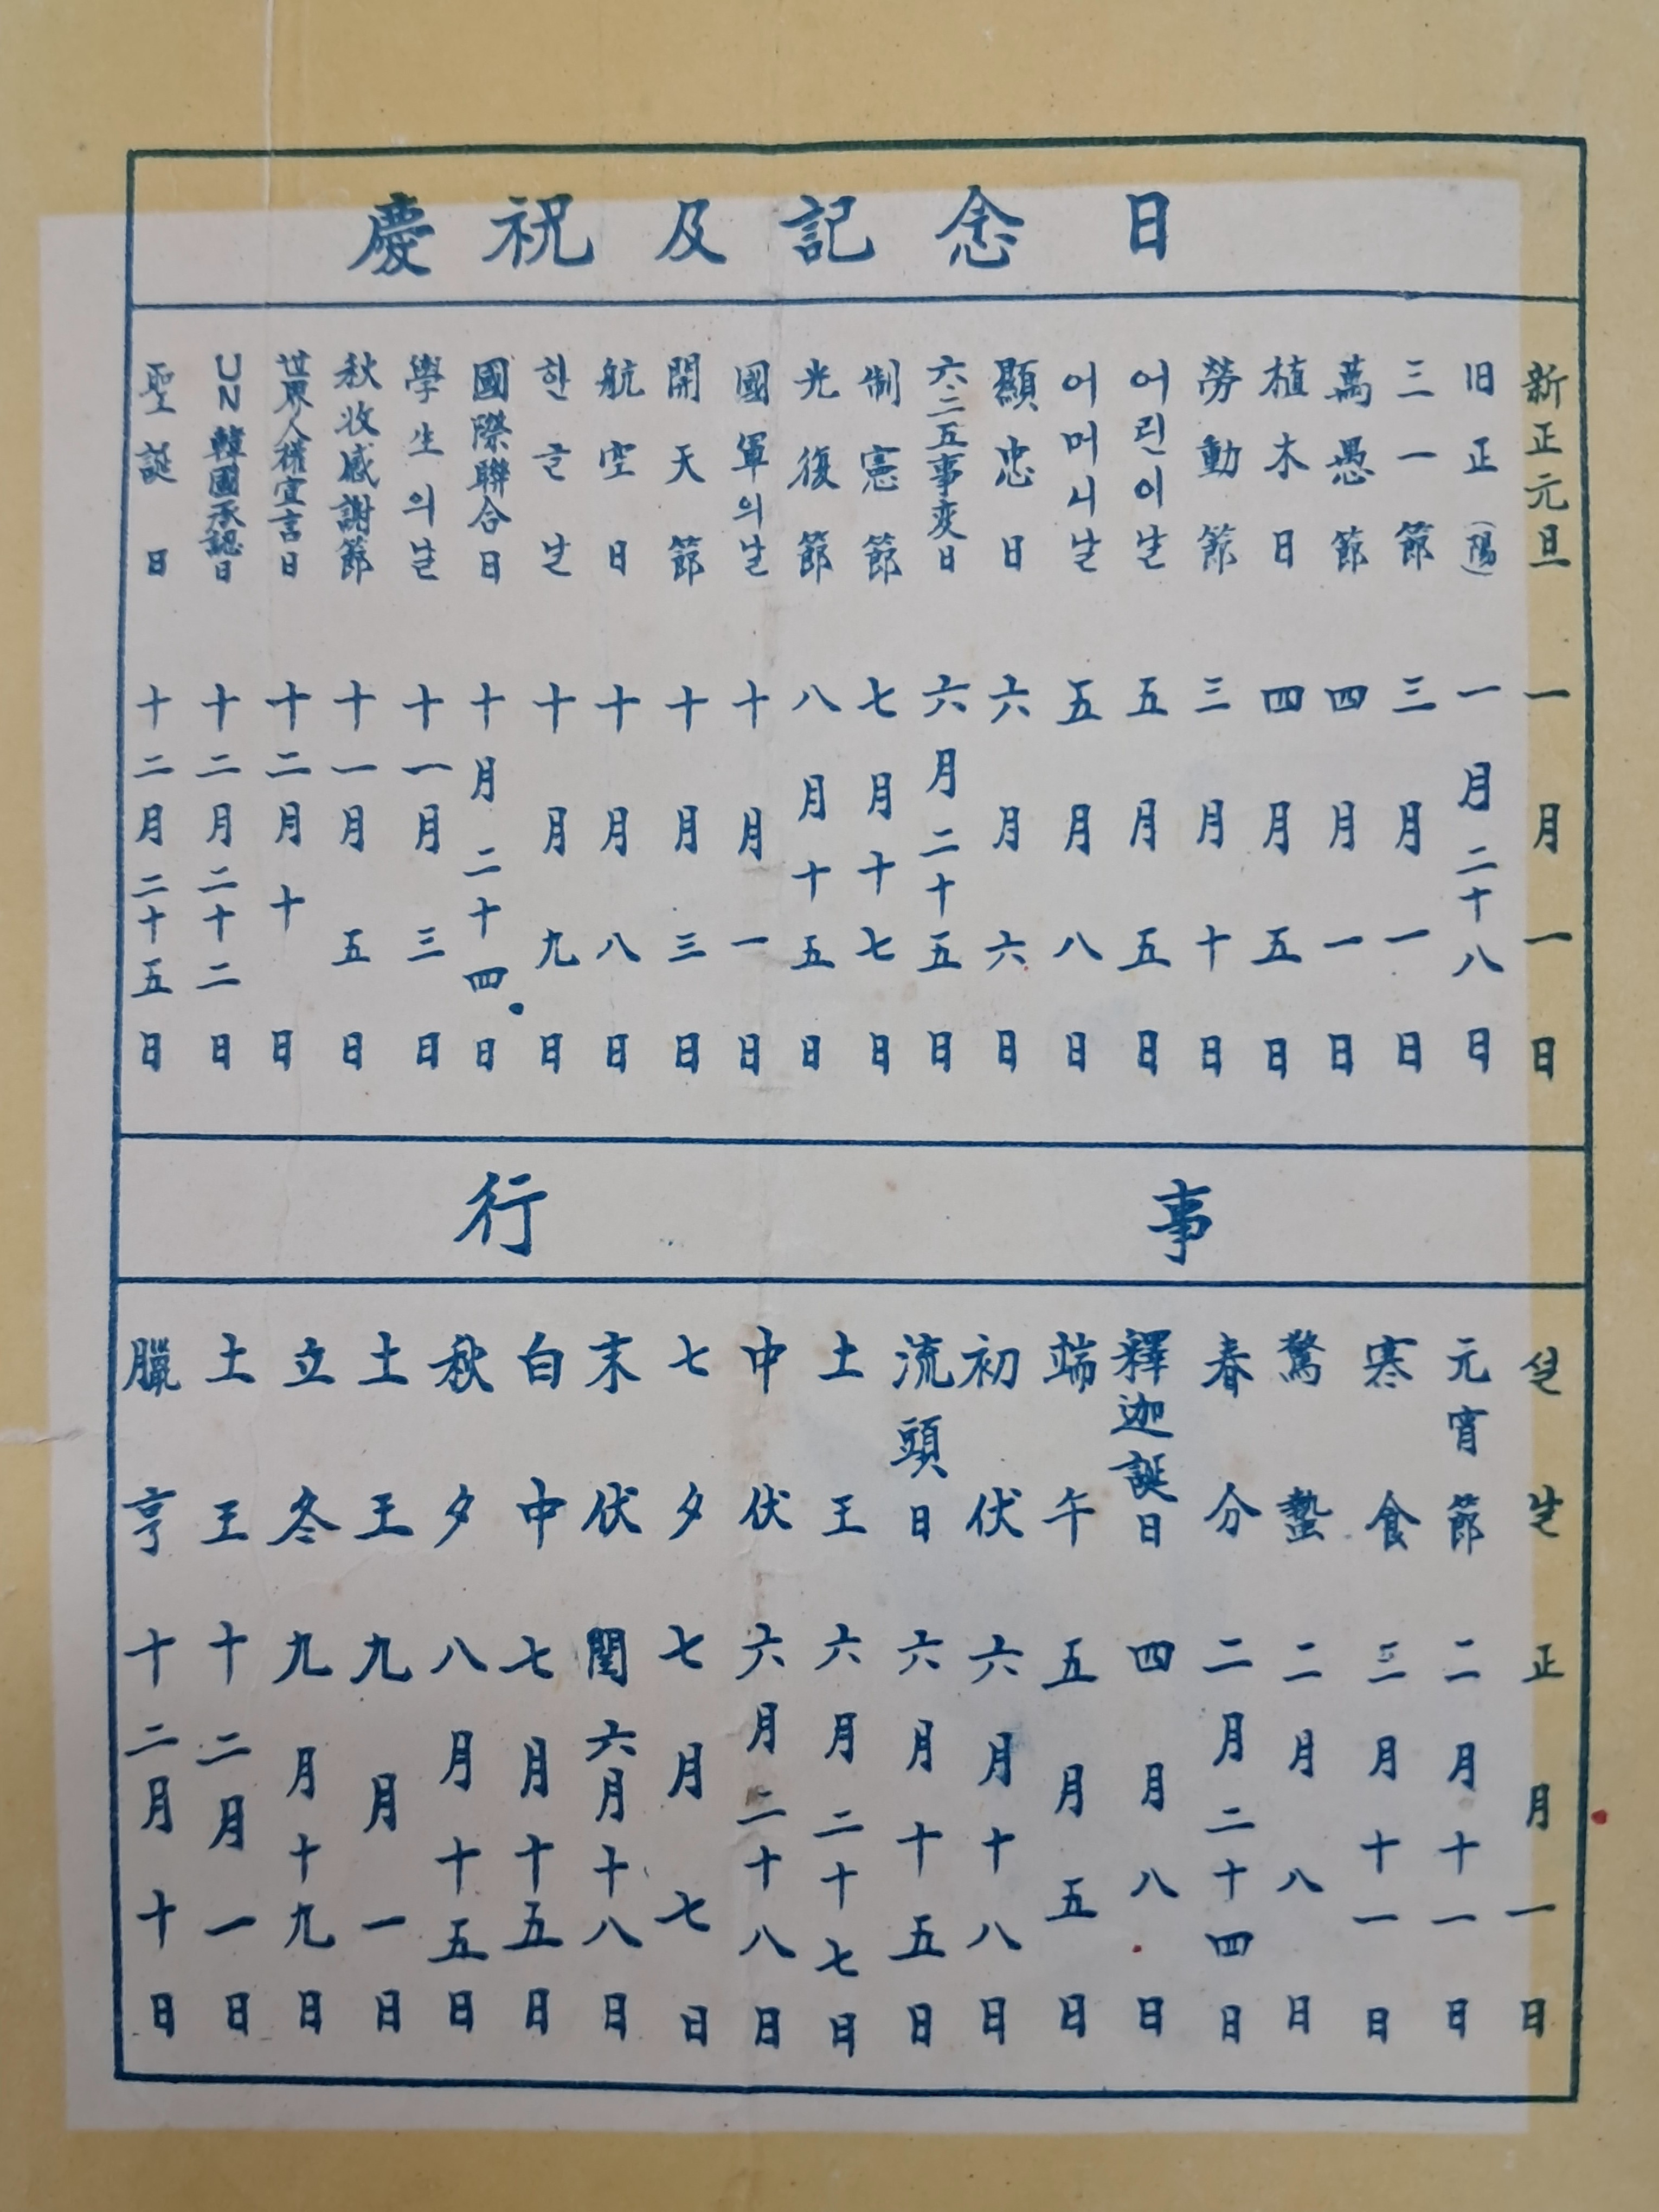 慶祝及記念日
新正元旦 一月一日
旧正(陽) 一月二十八日
三一節 三月一日
萬愚節 四月一日
植木日 四月五日
勞動節 三月十日
어린이날 五月五日
어머니날 五月八日
顯忠日 六月六日
六·二五事変日 六月二十五日
制憲節 七月十七日
光復節 八月十五日
國軍의날 十月一日
開天節 十月三日
航空日 十月八日
한글날 十月九日
國際聯合日 十月二十四日
學生의날 十一月三日
秋收感謝節 十一月五日
世界人権宣言日 十二月十日
UN韓國承認日 十二月二十二日
聖誕日 十二月二十五日
行事
설날 正月一日
元宵節 二月十一日
寒食 三月十一日
驚蟄 二月八日
春分 二月二十四日
釋迦誕日 四月八日
端午 五月五日
初伏 六月十八日
流頭日 六月十五日
土王 六月二十七日
中伏 六月二十八日
七夕 七月七日
末伏 閏六月十八日
白中 七月十五日
秋夕 八月十五日
土王 九月一日
立冬 九月十九日
土王 十二月一日
臘亨 十二月十日